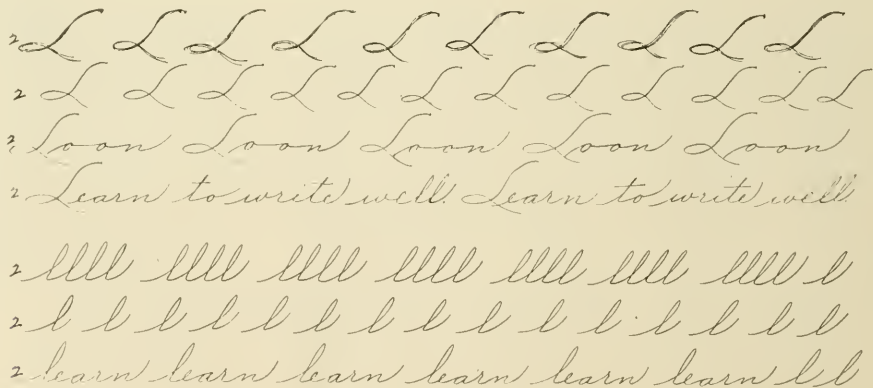 2 L L L L L L L L L L
2 L L L L L L L L L L L L
2 Loon Loon Loon Loon Loon
2 Learn to write well. Learn to write well.
2 llll llll llll llll llll llll llll l
2 l l l l l l l l l l l l l l l l l
2 learn learn learn learn learn learn l l